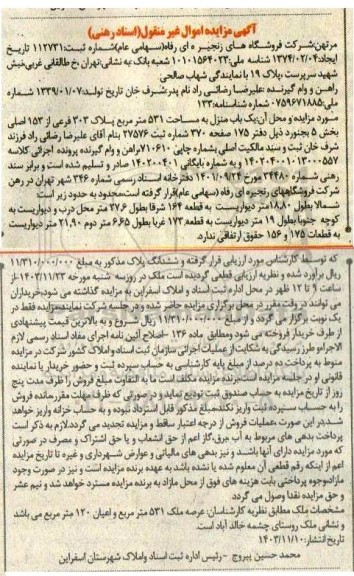 آگهی مزایده اموال غیر منقول(اسناد رهنی)
مرتهن:شرکت فروشگاه های زنجیره ای رفاه(سهامی عام)شماره ثبت:۱۱۲۷۳۱ تاریخ
ایجاد:۱۳۷۴/۰۲/۰۴ شناسه ملی:۱۰۱۰۱۵۶۴۰۲۳ شعبه بانک به نشانی:تهران ،خ طالقانی غربی،نبش
شهید سرپرست پلاک ۱۹ با نمایندگی شهاب صالحی.
راهن و وام گیرنده :علیرضا رضائی راد نام پدر:شرف خان تاریخ تولد:۱۳۳۹/۰۱/۰۷ شماره
ملی:۰۷۵۹۶۷۱۸۸۵ شماره شناسنامه:۱۳۳
مورد مزایده و محل آن:یک باب منزل به مساحت ۵۳۱ متر مربع پلاک ۳۰۳ فرعی از ۱۵۳ اصلی
بخش ۵ بجنورد ذیل دفتر ۱۷۵ صفحه ۳۷۰ شماره ثبت ۲۷۵۷۶ بنام آقای علیرضا رضائی راد فرزند
شرف خان ثبت و سند مالکیت اصلی بشماره چاپی ۷۱۰۶۱۰راهن و وام گیرنده پرونده اجرائی کلاسه
۱۴۰۲۰۴۰۰۱۰۱۳۰۰۰۵۵۷ و به شماره بایگانی ۱۴۰۲۰۰۴۰۱ صادر و تسلیم شده است و برابر سند
رهنی شماره ۳۴۴۸۰ مورخ ۱۴۰۱/۰۹/۲۴ دفترخانه اسناد رسمی شماره ۳۴۶ شهر تهران در رهن
شرکت فروشگاههای زنجیره ای رفاه (سهامی عام)قرار گرفته است.محدود به حدود زیر است:
شمالا بطول ۱۸٫۸۰متر دیواریست به قطعه ۱۶۴ شرقا بطول ۳۷٫۶ متر محل درب و دیواریست به
کوچه جنوبا بطول ۱۹ متر دیواریست به قطعه ۱۷۳ غربا بطول ۶٫۶۵ متر دوم ۲۱٫۹۰ متر دیواریست
به قطعات ۱۷۵ و ۱۵۶ حقوق ارتفاقی ندارد.
که توسط کارشناس مورد ارزیابی قرار گرفته و ششدانگ پلاک مذکور به مبلغ ۱۱/۳۱۰/۰۰۰/۰۰۰
ریال برآورد شده و نظریه ارزیابی قطعی گردیده است ملک در روز:سه شنبه مورخه ۱۴۰۳/۱۱/۲۳از
ساعت ۹ تا ۱۲ ظهر در محل اداره ثبت اسناد و املاک اسفراین به مزایده گذاشته می شود،خریداران
می توانند در وقت مقرر در محل برگزاری مزایده حاضر شده و در جلسه شرکت نمایند،مزایده فقط در
یک نوبت برگزار می گردد و از مبلغ ۱۱/۳۱۰/۰۰۰/۰۰۰ ریال شروع و به بالاترین قیمت پیشنهادی
از طرف خریدار فروخته می شود ومطابق ماده ۱۳۶ -اصلاح آئین نامه اجرای مفاد اسناد رسمی لازم
الاجراءو طرز رسیدگی به شکایت از عملیات اجرائی سازمان ثبت اسناد و املاک کشور شرکت در مزایده
منوط به پرداخت ده درصد از مبلغ پایه کارشناسی به حساب سپرده ثبت و حضور خریدار یا نماینده
قانونی او در جلسه مزایده است،برنده مزایده مکلف است ما به التفاوت مبلغ فروش را ظرف مدت پنج
روز از تاریخ مزایده به حساب صندوق ثبت تودیع نماید،و در صورتی که ظرف مهلت مقرر،مانده فروش
را به حساب سپرده ثبت واریز نکند،مبلغ مذکور قابل استرداد نبوده و به حساب خزانه واریز خواهد
شد.در این صورت ،عملیات فروش از درجه اعتبار ساقط و مزایده تجدید می گردد.لازم به ذکر است
پرداخت بدهی های مربوط به آب ،برق،گاز اعم از حق انشعاب و یا حق اشتراک و مصرف در صورتی
که مورد مزایده دارای آنها باشد.و نیز بدهی های مالیاتی و عوارض شهرداری و غیره تا تاریخ مزایده
اعم از اینکه رقم قطعی آن معلوم شده یا نشده باشد به عهده برنده مزایده است و نیز در صورت وجود
مازاد،وجوه پرداختی بابت هزینه های فوق از محل مازاد به برنده مزایده مسترد خواهد شد و نیم عشر
و حق مزایده نقدا وصول می گردد.
مشخصات ملک مطابق نظریه کارشناسان: عرصه ملک ۵۳۱ متر مربع و اعیان ۱۲۰ متر مربع می باشد
و نشانی ملک روستای چشمه خالد آباد است.
تاریخ انتشار:۱۴۰۳/۱۱/۱۰
محمد حسین پیروج - رئیس اداره ثبت اسناد واملاک شهرستان اسفراین